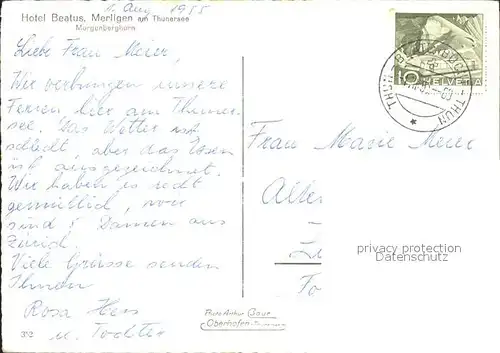 1. Aug 1955
Hotel Beatus, Merligen am Thunersee
Morgenberghorn
Liebe Frau Meier,
Wir verbringen unsere
Ferien hier am Thuner-
see. Das Wetter ist
schlecht, aber das Essen
ist ausgezeichnet.
Wir haben es recht
gemütlich, wir
sind 5 Damen aus
Zürich.
Viele Grüsse senden
Ihnen
Rosa Hess
u. Tochter
312
Photo Arthur Baur
Oberhofen-Thunersee
10 HELVETIA
THUN
Frau Marie Meier
privacy protection
Datenschutz